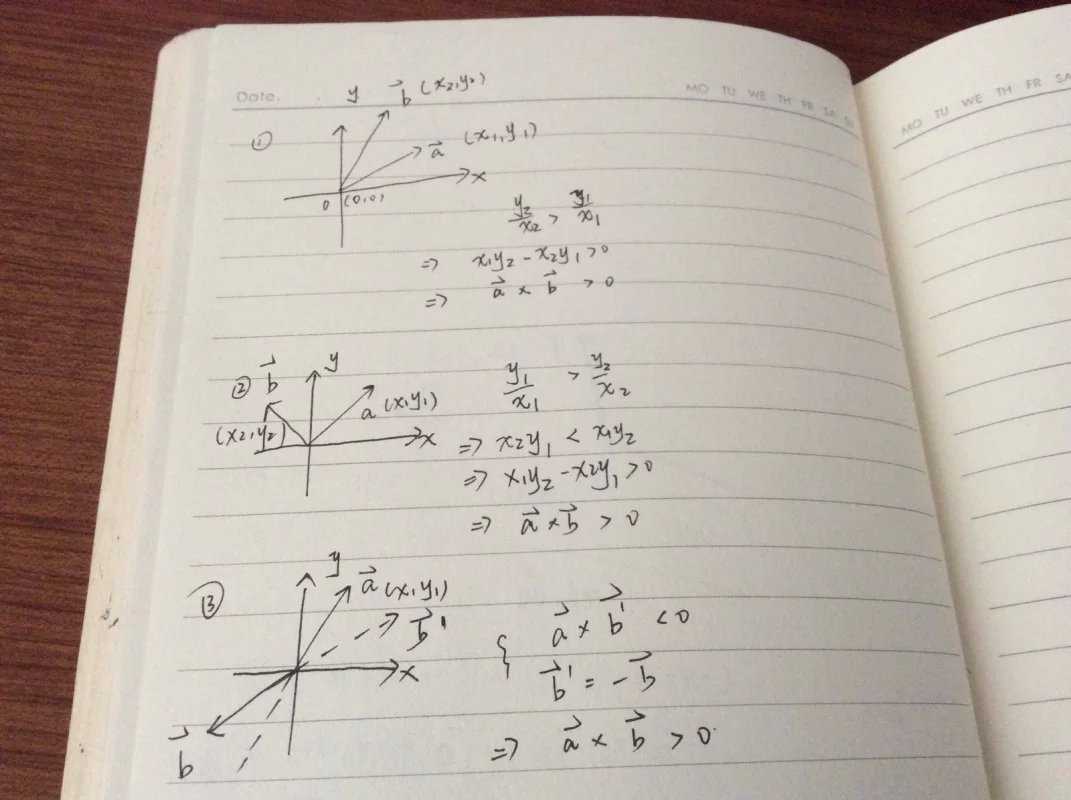 Date.
MO TU WE TH FR SA SU
MO TU WE TH FR SA
① y b⃗ (x₂,y₂)
a⃗ (x₁,y₁)
x
0 (0,0)
y₂/x₂ > y₁/x₁
=> x₁y₂ - x₂y₁ > 0
=> a⃗ × b⃗ > 0
② b⃗ y
a (x₁y₁)
(x₂,y₂) x
y₁/x₁ > y₂/x₂
=> x₂y₁ < x₁y₂
=> x₁y₂ - x₂y₁ > 0
=> a⃗ × b⃗ > 0
③ y a⃗ (x₁y₁)
b⃗'
x
b⃗
{ a⃗ × b⃗' < 0
b⃗' = -b⃗
=> a⃗ × b⃗ > 0